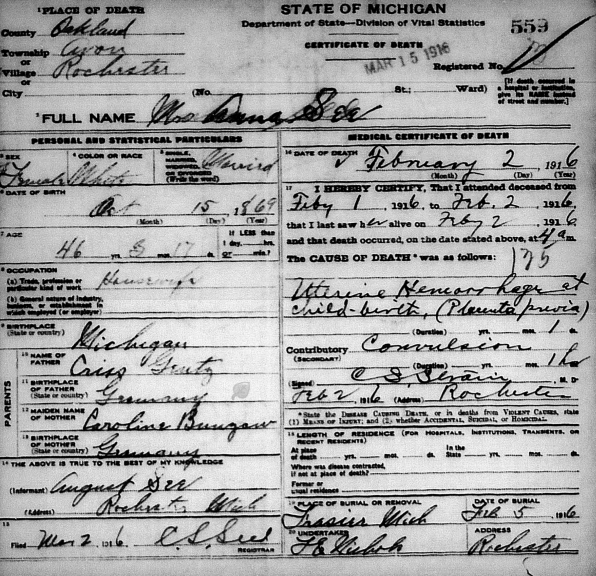 ¹PLACE OF DEATH
County Oakland
Township Avon
or
Village Rochester
or
City
(No. St.; Ward)
STATE OF MICHIGAN
Department of State—Division of Vital Statistics
CERTIFICATE OF DEATH
MAR 15 1916
559
Registered No.
[If death occurred in a hospital or institution, give its NAME instead of street and number.]
²FULL NAME Mrs Anna See
PERSONAL AND STATISTICAL PARTICULARS
³ SEX Female
⁴ COLOR OR RACE White
⁵ SINGLE, MARRIED, WIDOWED OR DIVORCED (Write the word) Married
⁶ DATE OF BIRTH
Oct 15, 1869
(Month) (Day) (Year)
⁷ AGE
46 yrs. 3 mos. 17 ds.
If LESS than
1 day, hrs.
or min.?
⁸ OCCUPATION
(a) Trade, profession or particular kind of work Housewife
(b) General nature of industry, business, or establishment in which employed (or employer)
⁹ BIRTHPLACE
(State or country) Michigan
PARENTS
¹⁰ NAME OF FATHER Criss Gentz
¹¹ BIRTHPLACE OF FATHER (State or country) Germany
¹² MAIDEN NAME OF MOTHER Caroline
¹³ BIRTHPLACE OF MOTHER (State or country) Germany
¹⁴ THE ABOVE IS TRUE TO THE BEST OF MY KNOWLEDGE
(Informant) August See
(Address) Rochester Mich
¹⁵
Filed Mar 2, 1916 C. S.
REGISTRAR
MEDICAL CERTIFICATE OF DEATH
¹⁶ DATE OF DEATH
February 2 1916
(Month) (Day) (Year)
¹⁷ I HEREBY CERTIFY, That I attended deceased from
Feby 1, 1916, to Feb. 2, 1916,
that I last saw her alive on Feby 2, 1916
and that death occurred, on the date stated above, at 4 a m.
The CAUSE OF DEATH * was as follows:
Uterine Hemorrhage at
child-birth, (Placenta previa)
(Duration) yrs. mos. 1 ds.
Contributory Convulsion
(SECONDARY)
(Duration) yrs. mos. 1 hr
(Signed) C. S. M. D.
Feb 2, 1916 (Address) Rochester
*State the DISEASE CAUSING DEATH, or in deaths from VIOLENT CAUSES, state
(1) MEANS OF INJURY; and (2) whether ACCIDENTAL, SUICIDAL, or HOMICIDAL.
¹⁸ LENGTH OF RESIDENCE (FOR HOSPITALS, INSTITUTIONS, TRANSIENTS, OR RECENT RESIDENTS)
At place of death yrs. mos. ds. In the State yrs. mos. ds.
Where was disease contracted,
if not at place of death?
Former or
usual residence
¹⁹ PLACE OF BURIAL OR REMOVAL
Frasier Mich
DATE OF BURIAL
Feb 5, 1916
²⁰ UNDERTAKER
ADDRESS
Rochester